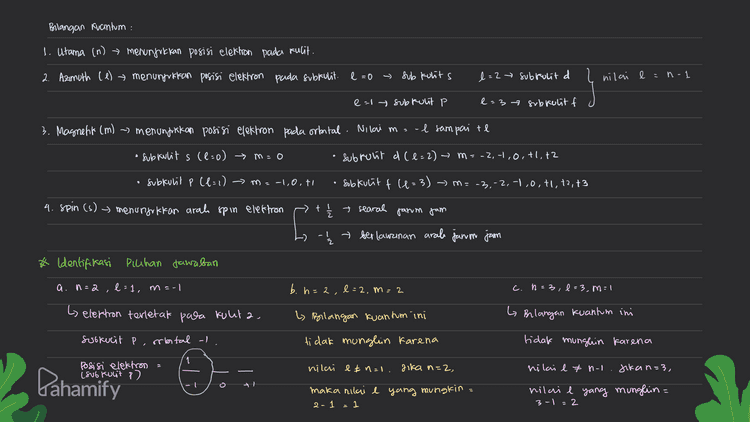 Bilangan Kuantum :
1. Utama (n) → menunjukkan posisi elektron pada kulit.
2. Azimuth (l) → menunjukkan posisi elektron pada subkulit. l=0 → sub kulit s   l=2 → subkulit d } nilai l = n-1
l=1 → subkulit p   l=3 → subkulit f
3. Magnetik (m) → menunjukkan posisi elektron pada orbital. Nilai m = -l sampai +l
• subkulit s (l=0) → m=0   • subkulit d (l=2) → m=-2,-1,0,+1,+2
• subkulit p (l=1) → m=-1,0,+1   • subkulit f (l=3) → m=-3,-2,-1,0,+1,+2,+3
4. Spin (s) → menunjukkan arah spin elektron → +1/2 → searah jarum jam
→ -1/2 → berlawanan arah jarum jam
Identifikasi Pilihan Jawaban
a. n=2, l=1, m=-1   b. n=2, l=2, m=2   c. n=3, l=3, m=1
↳ elektron terletak pada kulit 2,   ↳ Bilangan kuantum ini   ↳ Bilangan kuantum ini
subkulit p, orbital -1.   tidak mungkin karena   tidak mungkin karena
Posisi elektron =   1   nilai l ≠ n-1. Jika n=2,   nilai l ≠ n-1. Jika n=3,
(subkulit p)   -1   0   +1   maka nilai l yang mungkin =   nilai l yang mungkin =
2-1=1   3-1=2
Pahamify